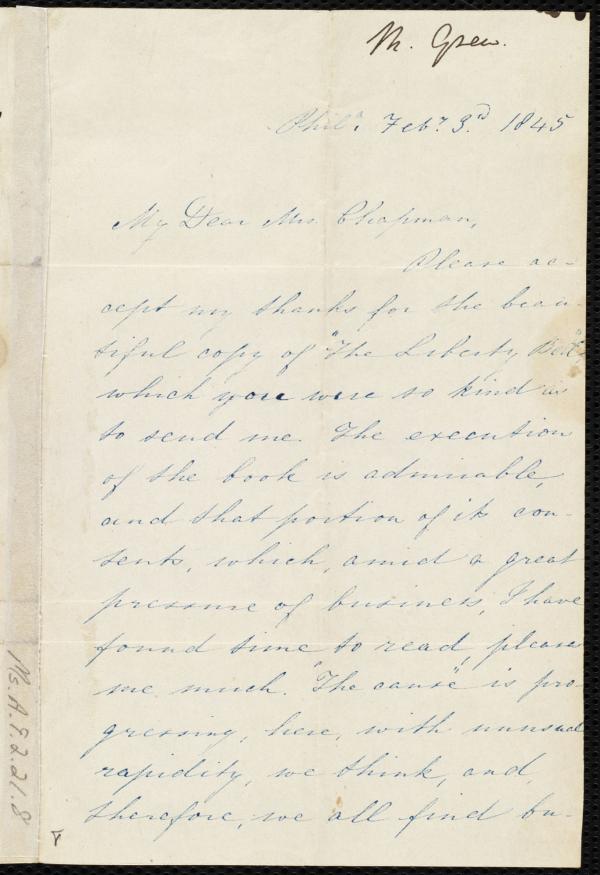 M. Grew.
Phil.ª Feb.y 3.rd 1845
My Dear Mrs. Chapman,
Please ac-
cept my thanks for the beau-
tiful copy of "The Liberty Bell",
which you were so kind as
to send me. The execution
of the book is admirable,
and that portion of its con-
tents, which, amid a great
pressure of business, I have
found time to read, pleases
me much. "The cause" is pro-
gressing, here, with unusual
rapidity, we think, and,
therefore, we all find bu-
Ms.A.9.2.21.8